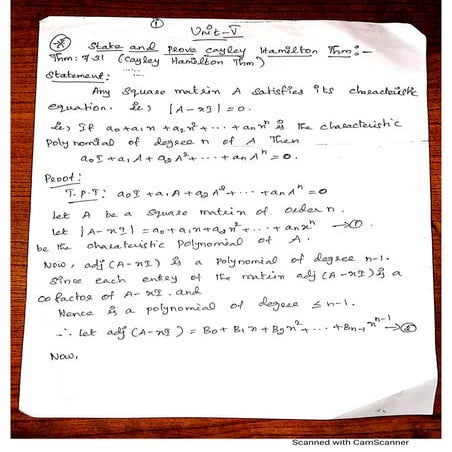 ①
Unit-V
State and prove Cayley Hamilton Thm:-
Thm: 7.31 (Cayley Hamilton Thm)
Statement:
Any Square matrix A satisfies its characteristic
equation. ie) |A-xI| = 0.
ie) If a₀+a₁x+a₂x²+...+aₙxⁿ is the characteristic
Polynomial of degree n of A Then
a₀I+a₁A+a₂A²+...+aₙAⁿ=0.
Proof:
T.P.T: a₀I+a₁A+a₂A²+...+aₙAⁿ=0
Let A be a square matrix of order n.
Let |A-xI| = a₀+a₁x+a₂x²+...+aₙxⁿ →①
be the charateristic Polynomial of A.
Now, adj(A-xI) is a polynomial of degree n-1.
Since each entry of the matrix adj(A-xI) is a
cofactor of A-xI. and
Hence is a polynomial of degree ≤n-1.
∴ Let adj(A-xI) = B₀+B₁x+B₂x²+...+Bₙ₋₁xⁿ⁻¹ →②
Now,
Scanned with CamScanner